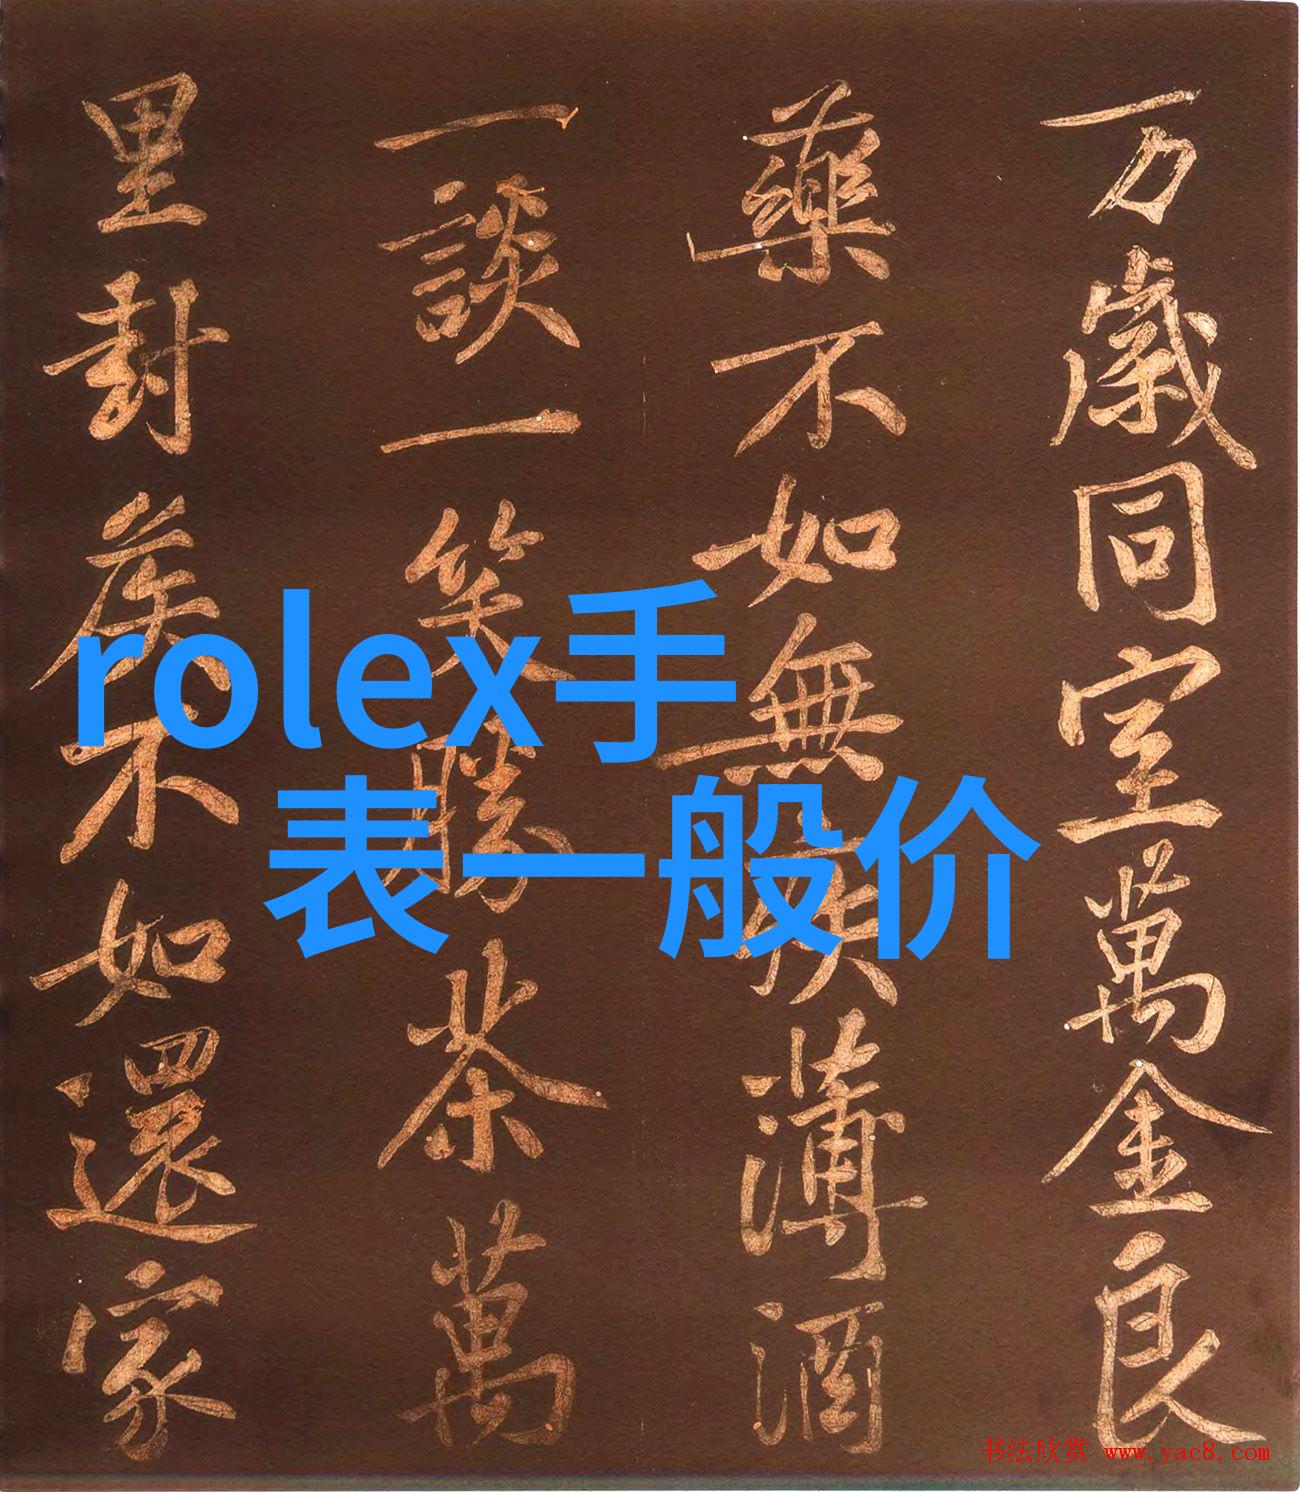 万歲同室萬金良
藥不如無疾薄酒
一談一笑勝茶萬
里封侯不如還家
rolex手
表一般价
书法欣赏 www.yac8.com